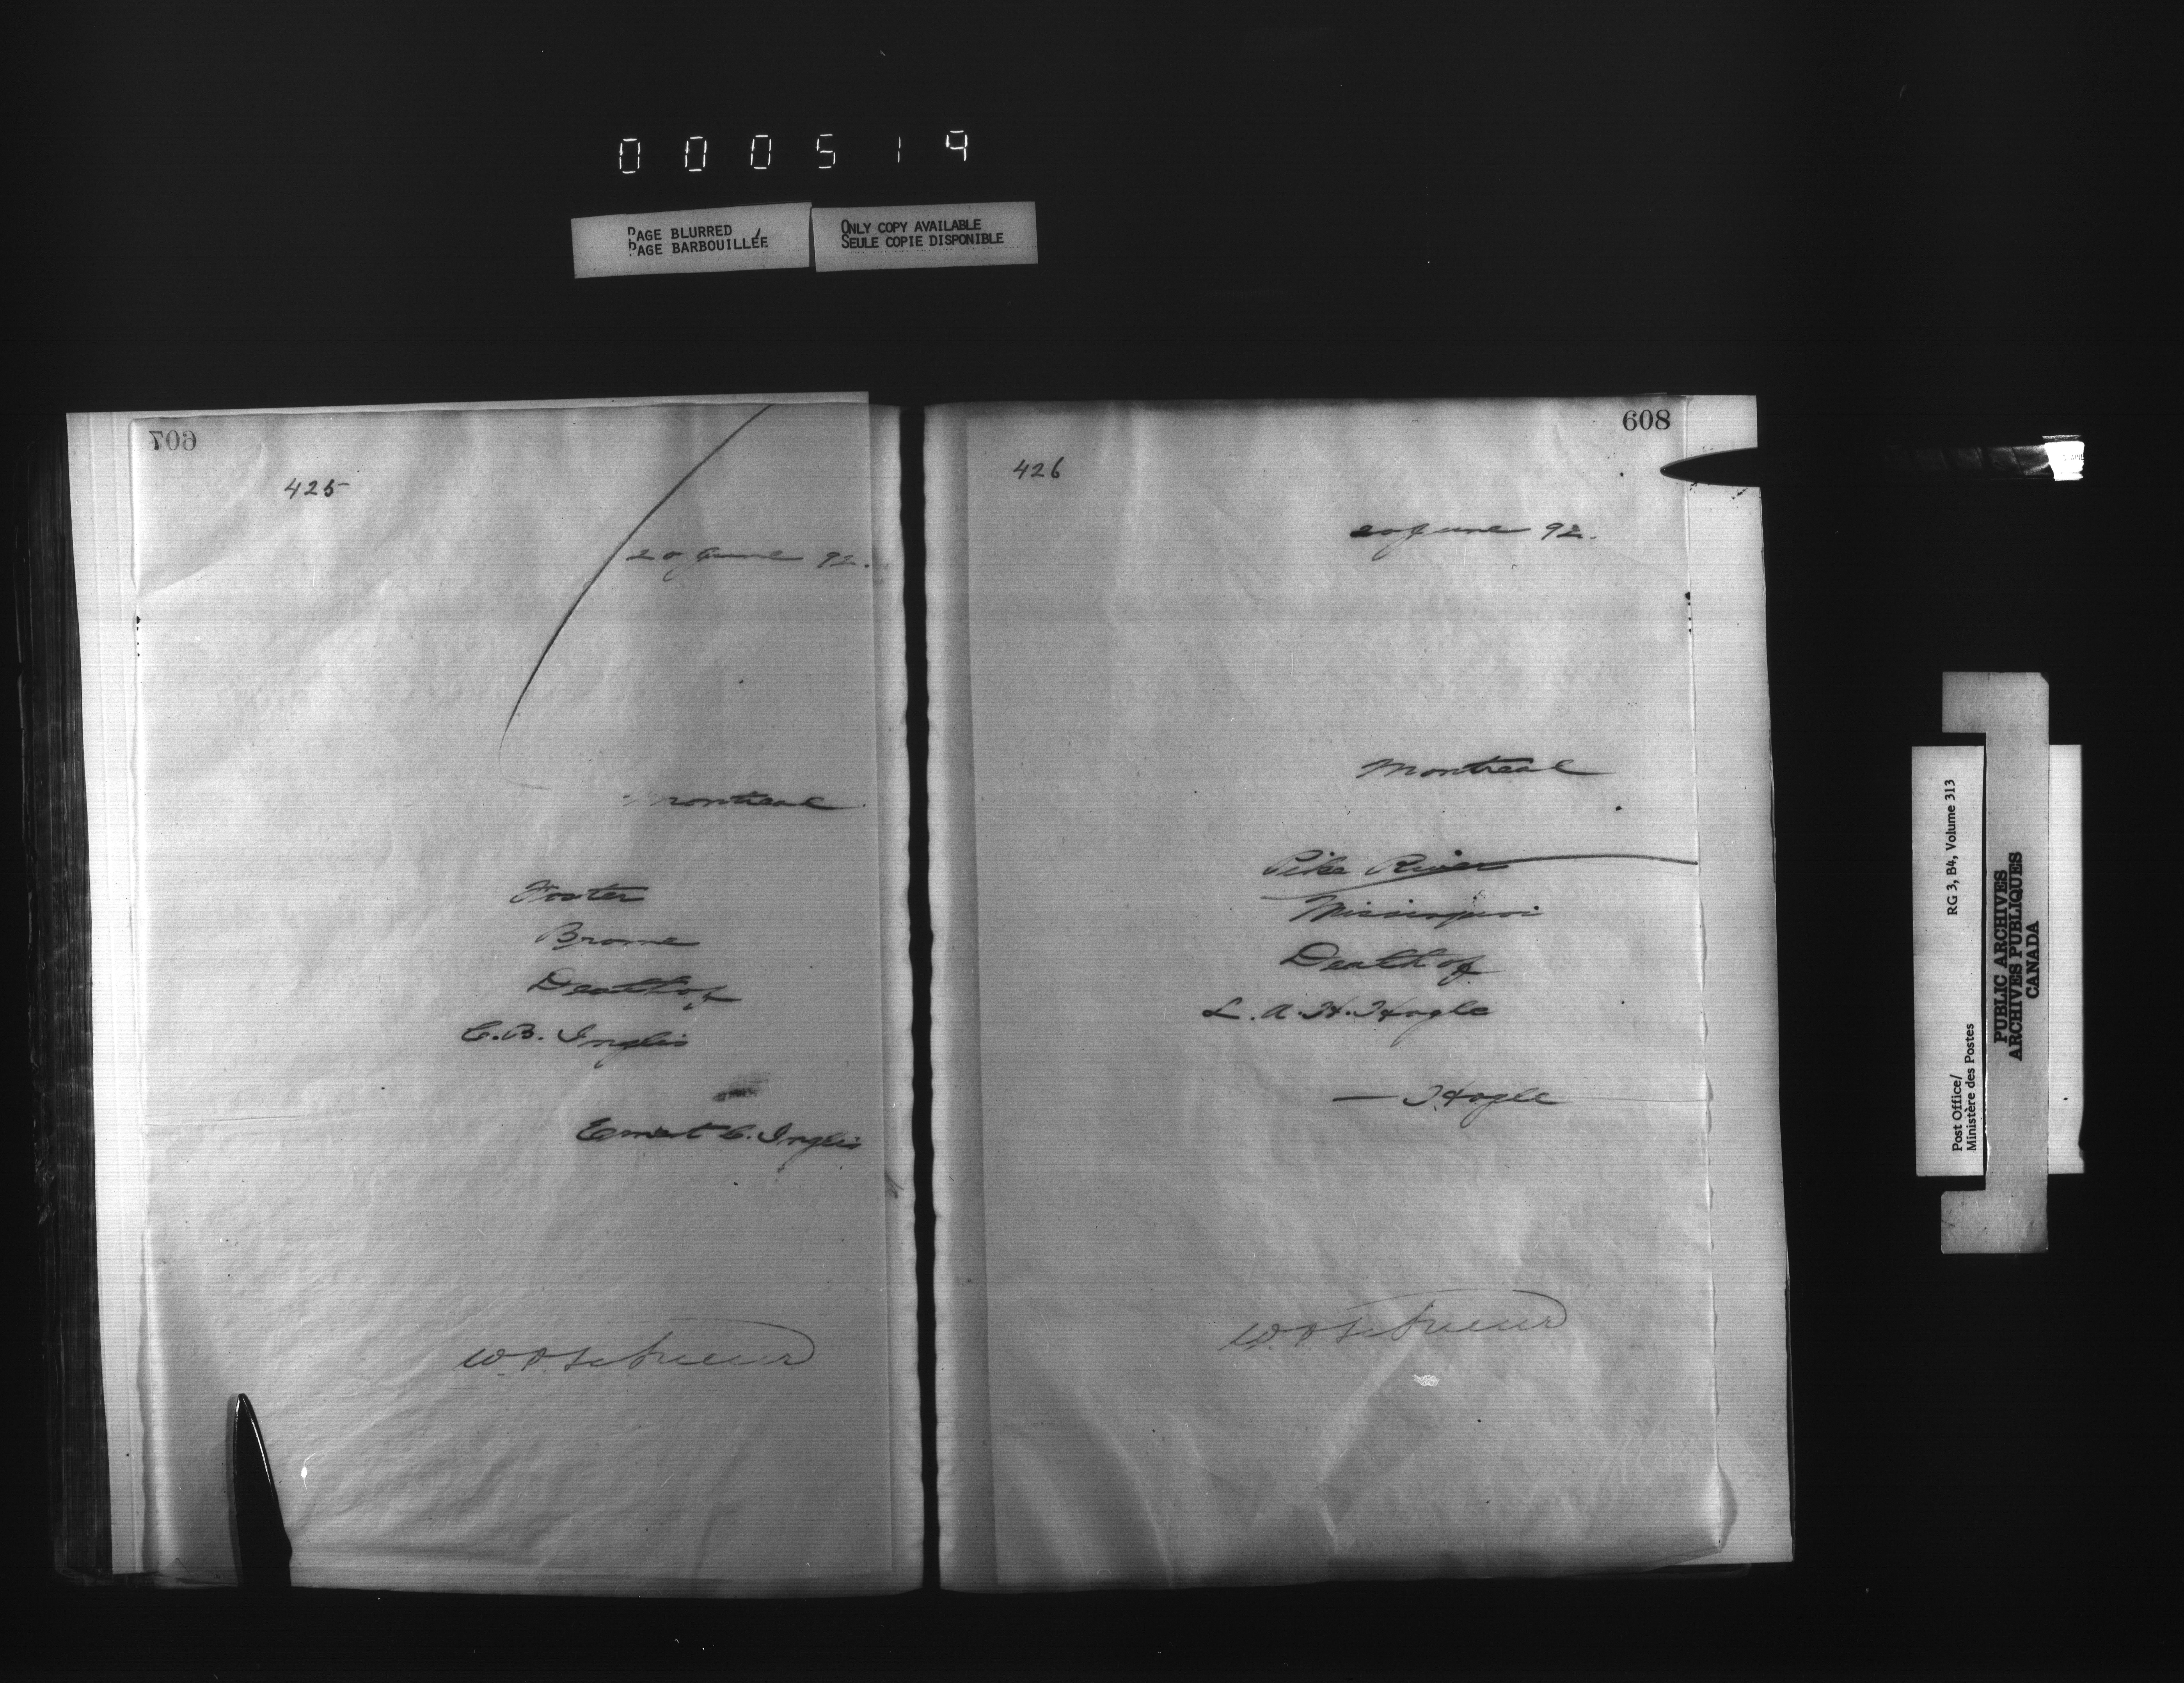 000519
PAGE BLURRED
PAGE BARBOUILLÉE
ONLY COPY AVAILABLE
SEULE COPIE DISPONIBLE
607
425
20 June 92.
Montreal
Foster
Brome
Death of
C. B. Inglis
Ernest C. Inglis
608
426
20 June 92.
Montreal
Pike River
Missisquoi
Death of
L. A. H. Hogle
— Hogle
Post Office/
Ministère des Postes
RG 3, B4, Volume 313
PUBLIC ARCHIVES
ARCHIVES PUBLIQUES
CANADA